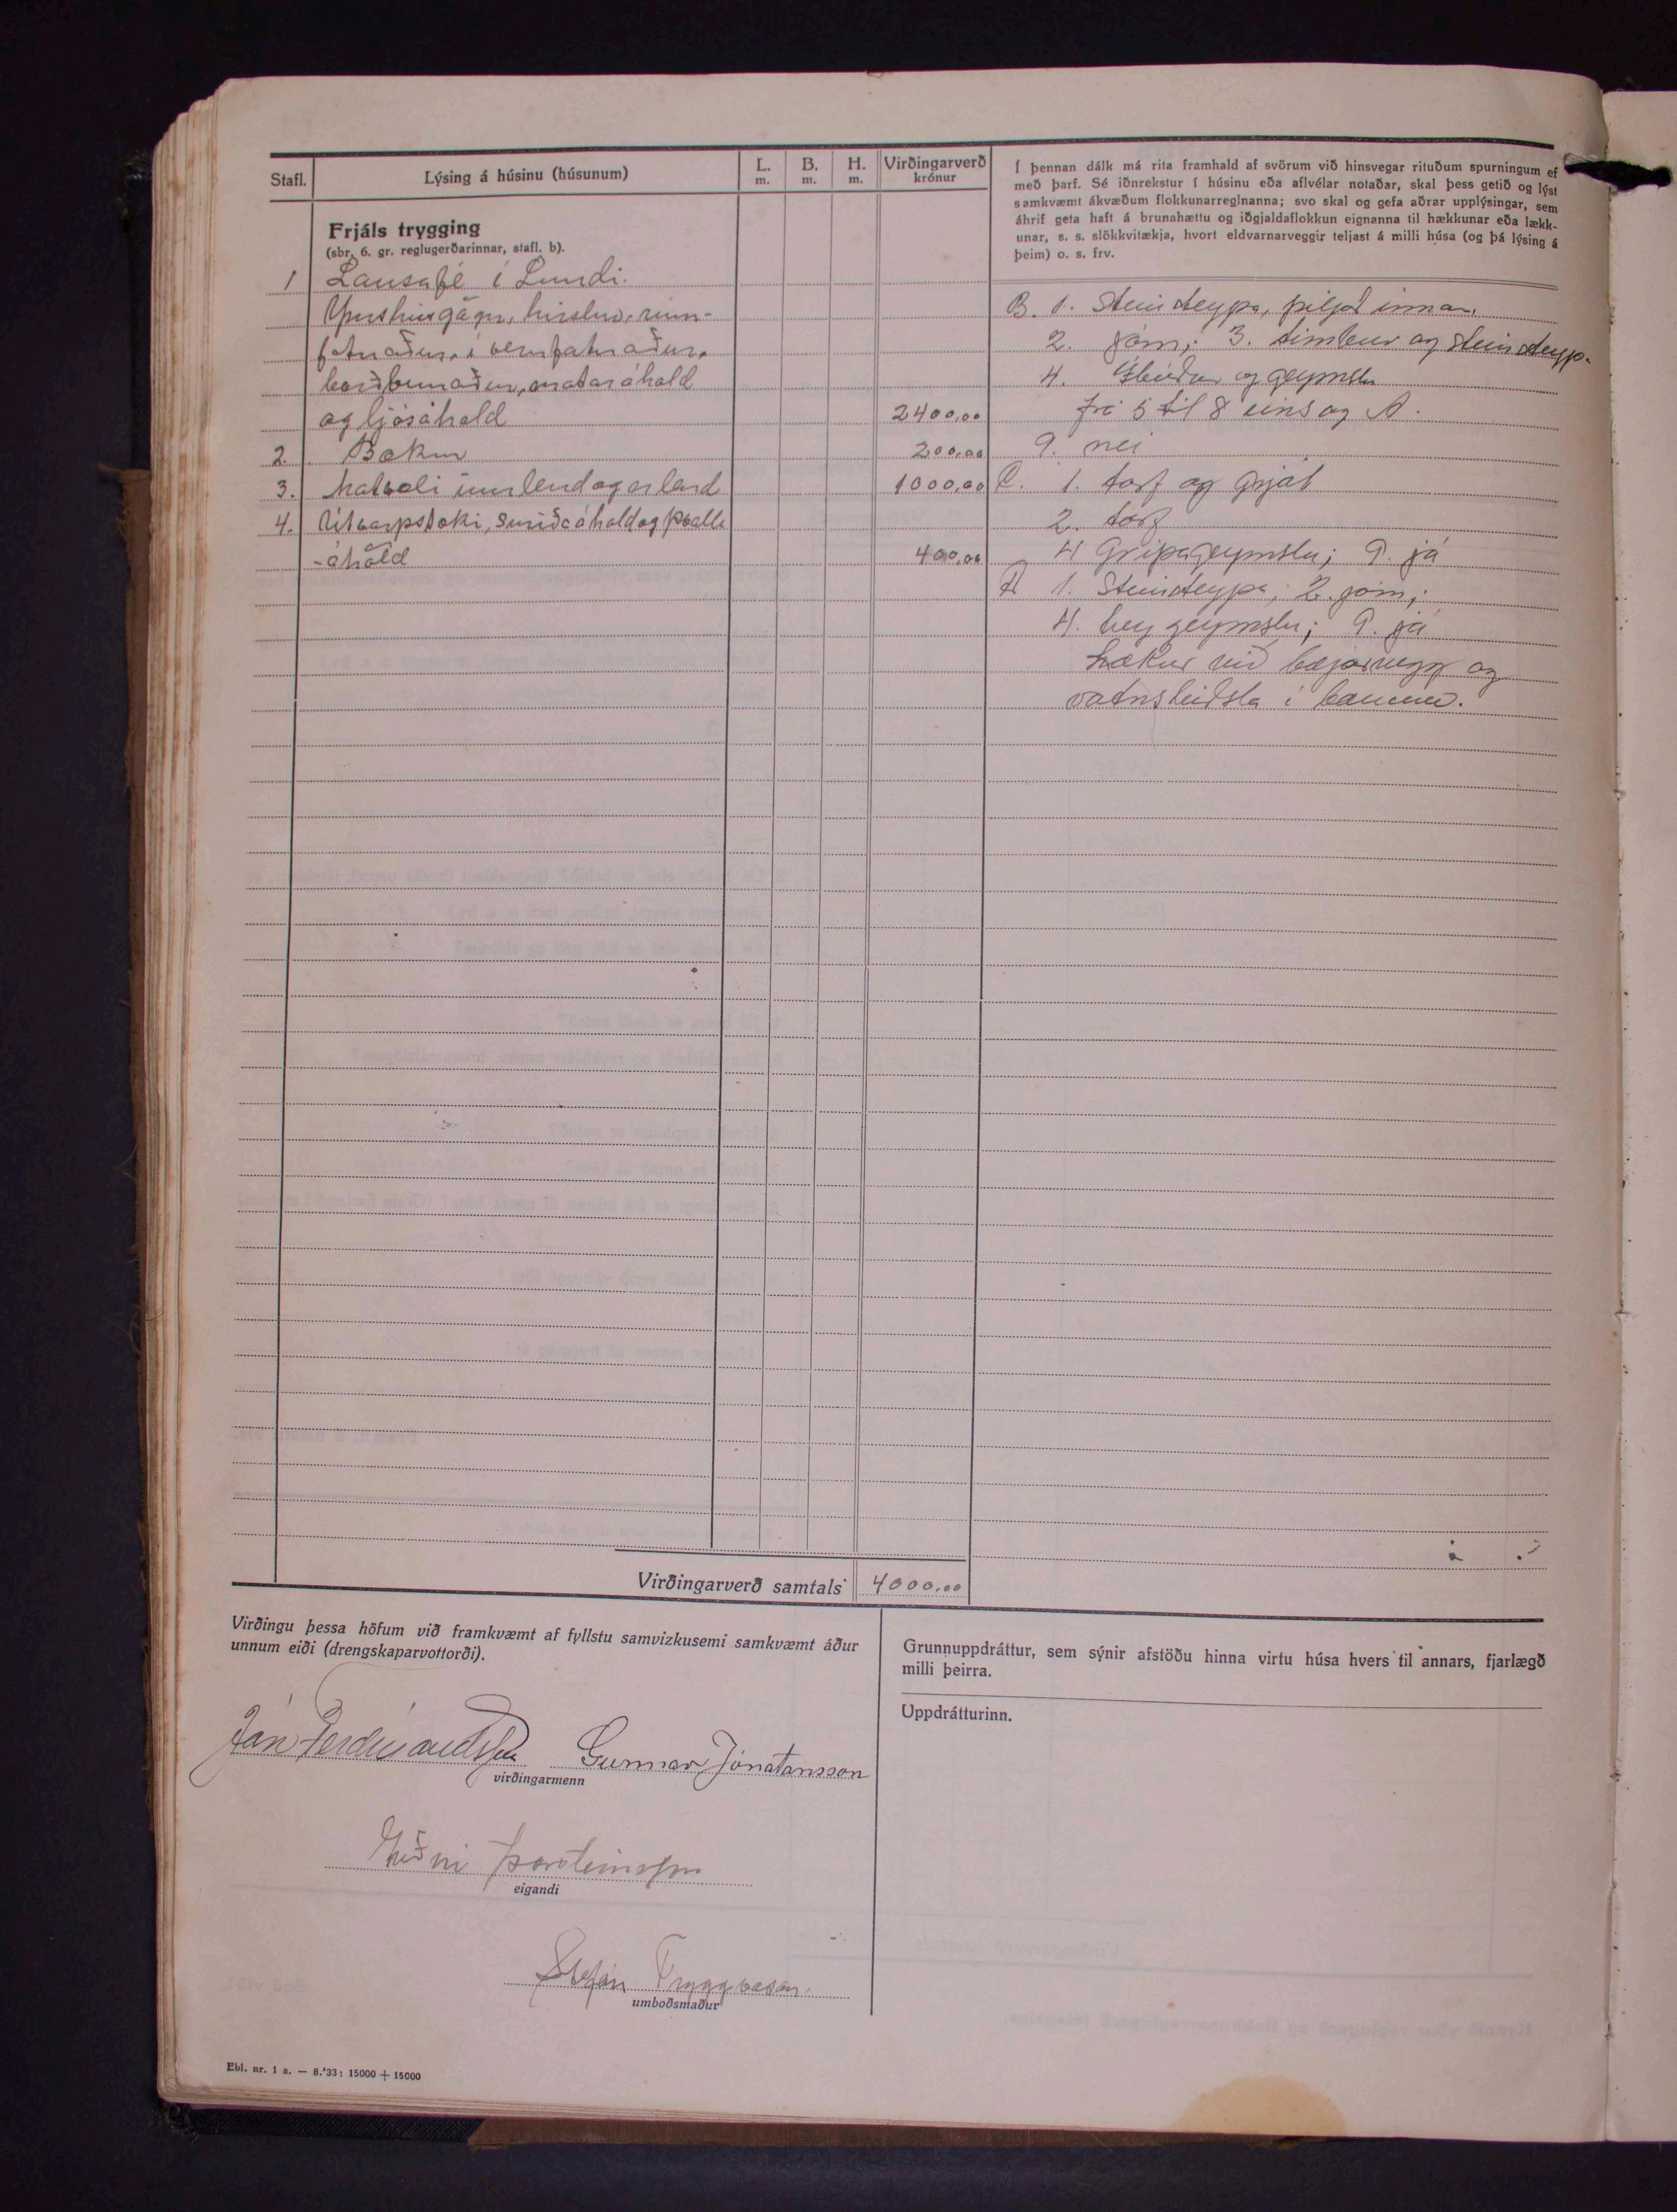 Stafl.
Lýsing á húsinu (húsunum)
L.
m.
B.
m.
H.
m.
Virðingarverð
krónur
Frjáls trygging
(sbr. 6. gr. reglugerðarinnar, stafl. b).
1 Lausafé í Lundi.
hirslur, rúm-
fatnaður, íverufatnaður,
borðbúnaður, mataráhöld
og ljósáhöld 2400,00
2. Bækur 200,00
3. Matvæli innlend og erlend 1000,00
4. Útvarpstæki, smíðaáhöld og
-áhöld 400,00
Í þennan dálk má rita framhald af svörum við hinsvegar rituðum spurningum ef
með þarf. Sé iðnrekstur í húsinu eða aflvélar notaðar, skal þess getið og lýst
samkvæmt ákvæðum flokkunarreglnanna; svo skal og gefa aðrar upplýsingar, sem
áhrif geta haft á brunahættu og iðgjaldaflokkun eignanna til hækkunar eða lækk-
unar, s. s. slökkvitækja, hvort eldvarnarveggir teljast á milli húsa (og þá lýsing á
þeim) o. s. frv.
B. 1. Steinsteypa, þiljað innan,
2. járn; 3. timbur og steinsteypa
4. Íbúðar og geymslu
frá 5 til 8 eins og A.
9. nei
C. 1. torf og grjót
2. torf
4 Gripageymslu; 9. já
1. Steinsteypa; 2. járn;
4. heygeymslu; 9. já
Lækur við bæjarvegg og
vatnsleiðsla í bænum.
Virðingarverð samtals 4000,00
Virðingu þessa höfum við framkvæmt af fyllstu samvizkusemi samkvæmt áður
unnum eiði (drengskaparvottorði).
Jón Ferdínandsson Gunnar Jónatansson
virðingarmenn
Guðni Þorsteinsson
eigandi
Stefán Tryggvason.
umboðsmaður
Grunnuppdráttur, sem sýnir afstöðu hinna virtu húsa hvers til annars, fjarlægð
milli þeirra.
Uppdrátturinn.
Ebl. nr. 1 a. — 8.'33: 15000 + 15000